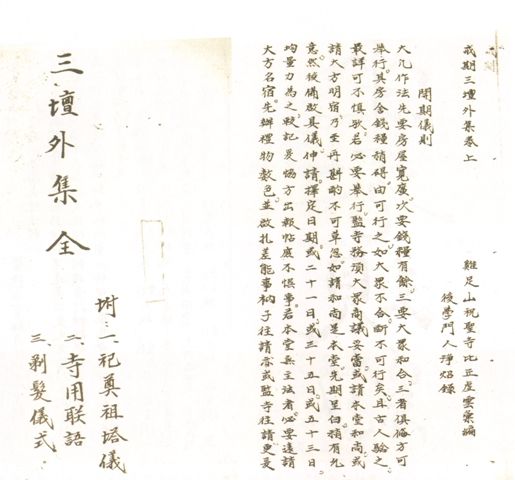 三壇外集 全
坿：一、祀奠祖塔儀
二、寺用联語
三、剃髮儀式
戒期三壇外集卷上
雞足山祝聖寺比丘虛雲彙編
後學門人淨焰錄
開期儀則
大凡作法先要房屋寬廣。次要錢糧有餘。三要大眾和合。三者俱偹方可
舉行。其房舍錢糧稍碍。由可行之。如大眾不合。斷不可行矣。且古人驗之
最詳。可不慎歟。若必要舉行。監寺務須大眾商議妥當。或請本堂和尚。或
請大方明宿。乃至再斟酌不可草忽。如請和尚是本堂。先期呈白。稍有允
意。然後偹啟具儀。伸請擇定日期。或二十一日。或三十五日。或五十三日
均量力為之。方出報帖。庶不悞事。若本堂無主法者。必要遠請
大方名宿。先辦禮物數色。並啟扎差能事衲子往請。或監寺往請更妥